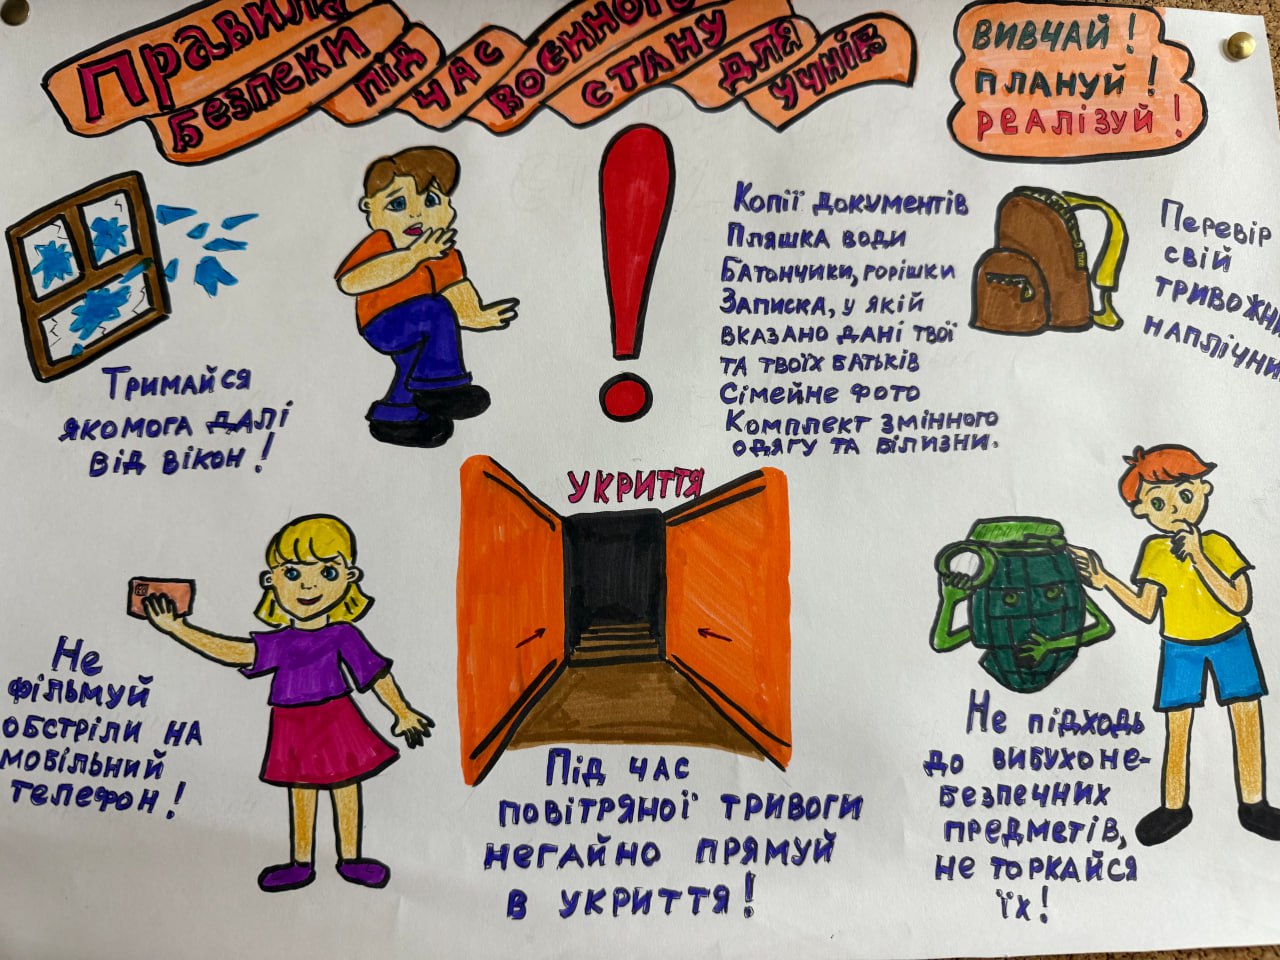 Правила
безпеки
під
час
воєнного
стану
для
учнів
Вивчай!
Плануй!
Реалізуй!
Тримайся
якомога далі
від вікон!
Копії документів
Пляшка води
Батончики, горішки
Записка, у якій
вказано дані твої
та твоїх батьків
Сімейне фото
Комплект змінного
одягу та білизни.
Перевір
свій
Не
фільмуй
обстріли на
мобільний
телефон!
Укриття
Під час
повітряної тривоги
негайно прямуй
в укриття!
Не підходь
до вибухоне-
безпечних
предметів,
не торкайся
їх!